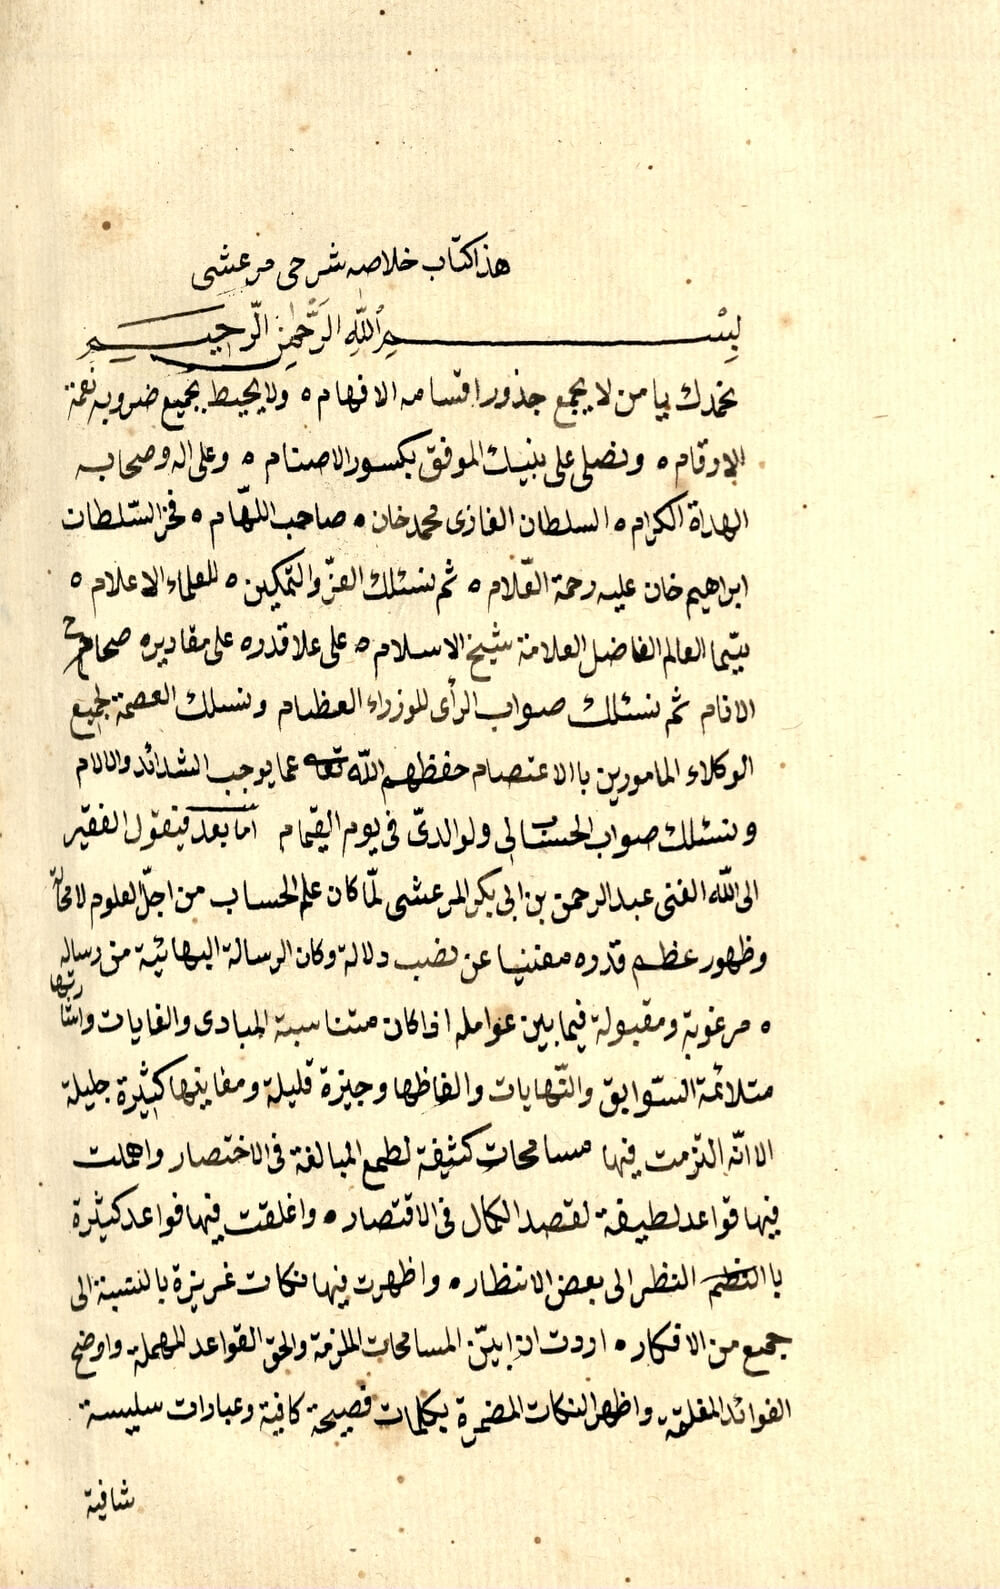 هذا كتاب خلاصه شرحى مرعشى
بِسْمِ اللّٰهِ الرَّحْمٰنِ الرَّحيم
نحمدك يا من لا يجمع جذور اقسامه الافهام ٥ ولا يحيط بجميع ضروب نعمة
الارقام ٥ ونصلى على نبيك الموفق بكسور الاصنام ٥ وعلى اله وصحابه
الهداة الكرام ٥ السلطان الغازى محمد خان ٥ صاحب اللهّام ٥ فخر السّلطات
ابراهيم خان عليه رحمة العّلام ٥ ثم نسئلك العزّ والتمكين ٥ للعلماء الاعلام ٥
سيّما العالم الفاضل العلامة شيخ الاسلام ٥ على علا قدره على مقاديره
الانام ثم نسئلك صواب الرأى للوزراء العظام ونسلك العصمة لجميع
الوكلاء المامورين باالاعتصام حفظهم اللّٰه تعه عما يوجب الشدائد والالام
ونسئلك صواب الحساب لى ولوالدىّ فى يوم القيمام اما بعد فيقول الفقير
الى اللّٰه الغنى عبد الرحمن بن ابى بكر المرعشى لمّا كان علم الحساب من اجلّ العلوم لا محالة
وظهور عظم قدره مغنيا عن نصب دلالة وكان الرسالة البهائية من رساله
٥ مرغوبة ومقبولة فيما بين عوامله اذا كان متناسبة المبادى والغايات
متلائمة السّوابق والنّهايات والفاظها وجيزة قليلة ومعانيها كثيرة جليلة
الا انّه التزمت فيها مسامحات كثيفة لطمع المبالغة فى الاختصار واهملت
فيها قواعد لطيفة لقصد الكمال فى الاقتصار ٥ واغلقت فيها فواعد كثيرة
باالنظم النظر الى بعض الانتظار ٥ واظهرت فيها نكات غريزة بالنسبة الى
جميع من الافكار ٥ اردت ان ابيّن المسامحات الملزمة والحق القواعد المهملة واوضح
الفوائد المغلقة واظهر النكات المضمرة بكلمات فصيحة كافية وعبارات سليسة
شافية